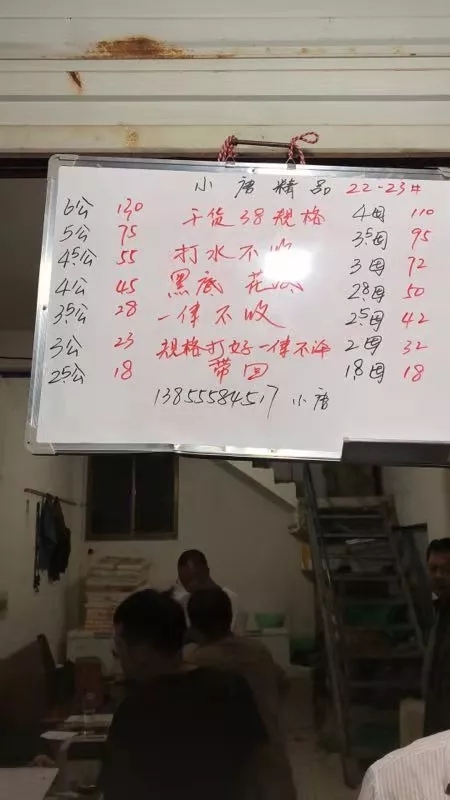 小唐精品 22-23#
6公 130 干货38规格 4母 110
5公 75 打水不收 3.5母 95
4.5公 55 3母 72
4公 45 黑底 花 2.8母 50
3.5公 28 一律不收 2.5母 42
3公 23 规格打好一律不 2母 32
2.5公 18 带回 1.8母 18
13855584517 小唐